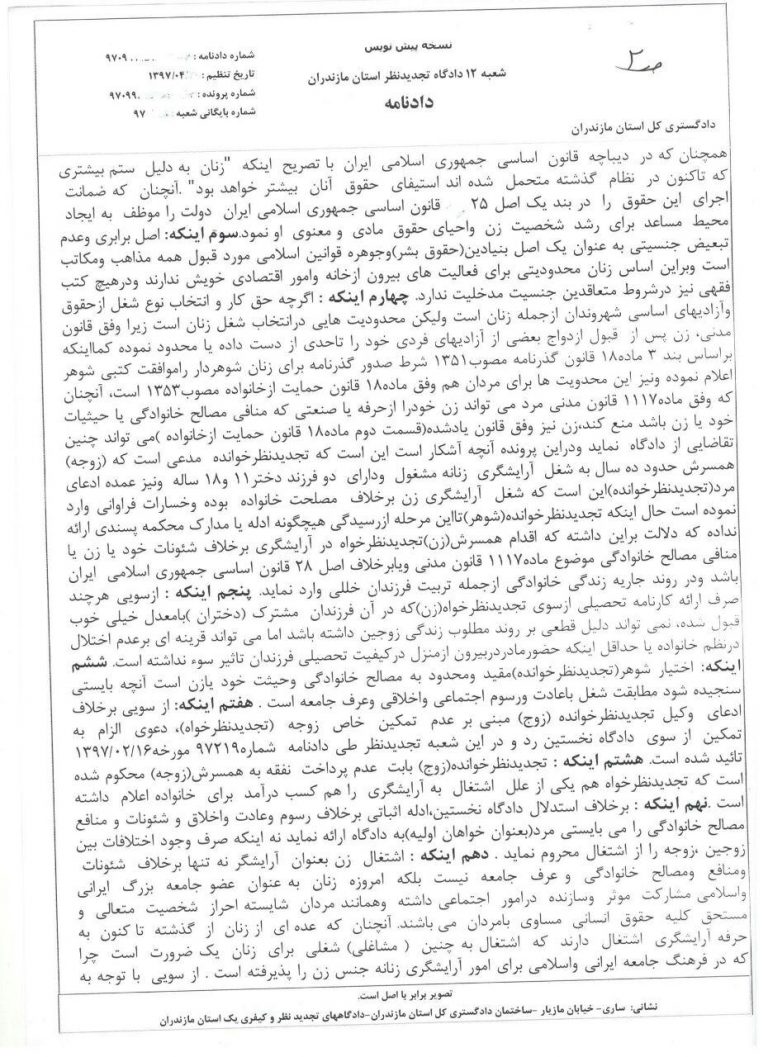 نسخه پیش نویس
شعبه ۱۲ دادگاه تجدیدنظر استان مازندران
دادنامه
شماره دادنامه : ۹۷۰۹
تاریخ تنظیم : ۱۳۹۷/۰۴/
شماره پرونده : ۹۷۰۹۹
شماره بایگانی شعبه : ۹۷
دادگستری کل استان مازندران
همچنان که در دیباچه قانون اساسی جمهوری اسلامی ایران با تصریح اینکه "زنان به دلیل ستم بیشتری
که تاکنون در نظام گذشته متحمل شده اند استیفای حقوق آنان بیشتر خواهد بود" .آنچنان که ضمانت
اجرای این حقوق را در بند یک اصل ۲۵ قانون اساسی جمهوری اسلامی ایران دولت را موظف به ایجاد
محیط مساعد برای رشد شخصیت زن واحیای حقوق مادی و معنوی او نمود.سوم اینکه: اصل برابری وعدم
تبعیض جنسیتی به عنوان یک اصل بنیادین(حقوق بشر)وجوهره قوانین اسلامی مورد قبول همه مذاهب ومکاتب
است وبراین اساس زنان محدودیتی برای فعالیت های بیرون ازخانه وامور اقتصادی خویش ندارند ودرهیچ کتب
فقهی نیز درشروط متعاقدین جنسیت مدخلیت ندارد. چهارم اینکه : اگرچه حق کار و انتخاب نوع شغل ازحقوق
وآزادیهای اساسی شهروندان ازجمله زنان است ولیکن محدودیت هایی درانتخاب شغل زنان است زیرا وفق قانون
مدنی، زن پس از قبول ازدواج بعضی از آزادیهای فردی خود را تاحدی از دست داده یا محدود نموده کمااینکه
براساس بند ۳ ماده۱۸ قانون گذرنامه مصوب۱۳۵۱ شرط صدور گذرنامه برای زنان شوهردار راموافقت کتبی شوهر
اعلام نموده ونیز این محدویت ها برای مردان هم وفق ماده۱۸ قانون حمایت ازخانواده مصوب۱۳۵۳ است، آنچنان
که وفق ماده۱۱۱۷ قانون مدنی مرد می تواند زن خودرا ازحرفه یا صنعتی که منافی مصالح خانوادگی یا حیثیات
خود یا زن باشد منع کند،زن نیز وفق قانون یادشده(قسمت دوم ماده۱۸ قانون حمایت ازخانواده )می تواند چنین
تقاضایی از دادگاه نماید ودراین پرونده آنچه آشکار است این است که تجدیدنظرخوانده مدعی است که (زوجه)
همسرش حدود ده سال به شغل آرایشگری زنانه مشغول ودارای دو فرزند دختر۱۱ و۱۸ ساله ونیز عمده ادعای
مرد(تجدیدنظرخوانده)این است که شغل آرایشگری زن برخلاف مصلحت خانواده بوده وخسارات فراوانی وارد
نموده است حال اینکه تجدیدنظرخوانده(شوهر)تااین مرحله ازرسیدگی هیچگونه ادله یا مدارک محکمه پسندی ارائه
نداده که دلالت براین داشته که اقدام همسرش(زن)تجدیدنظرخواه در آرایشگری برخلاف شئونات خود یا زن یا
منافی مصالح خانوادگی موضوع ماده۱۱۱۷ قانون مدنی ویابرخلاف اصل ۲۸ قانون اساسی جمهوری اسلامی ایران
باشد ودر روند جاریه زندگی خانوادگی ازجمله تربیت فرزندان خللی وارد نماید. پنجم اینکه : ازسویی هرچند
صرف ارائه کارنامه تحصیلی ازسوی تجدیدنظرخواه(زن)که در آن فرزندان مشترک (دختران )بامعدل خیلی خوب
قبول شده، نمی تواند دلیل قطعی بر روند مطلوب زندگی زوجین داشته باشد اما می تواند قرینه ای برعدم اختلال
درنظم خانواده یا حداقل اینکه حضورمادردربیرون ازمنزل درکیفیت تحصیلی فرزندان تاثیر سوء نداشته است. ششم
اینکه: اختیار شوهر(تجدیدنظرخوانده)مقید ومحدود به مصالح خانوادگی وحیثت خود یازن است آنچه بایستی
سنجیده شود مطابقت شغل باعادت ورسوم اجتماعی واخلاقی وعرف جامعه است . هفتم اینکه: از سویی برخلاف
ادعای وکیل تجدیدنظرخوانده (زوج) مبنی بر عدم تمکین خاص زوجه (تجدیدنظرخواه)، دعوی الزام به
تمکین از سوی دادگاه نخستین رد و در این شعبه تجدیدنظر طی دادنامه شماره۹۷۲۱۹ مورخه۱۳۹۷/۰۲/۱۶
تائید شده است. هشتم اینکه : تجدیدنظرخوانده(زوج) بابت عدم پرداخت نفقه به همسرش(زوجه) محکوم شده
است که تجدیدنظرخواه هم یکی از علل اشتغال به آرایشگری را هم کسب درآمد برای خانواده اعلام داشته
است .نهم اینکه : برخلاف استدلال دادگاه نخستین،ادله اثباتی برخلاف رسوم وعادت واخلاق و شئونات و منافع
مصالح خانوادگی را می بایستی مرد(بعنوان خواهان اولیه)به دادگاه ارائه نماید نه اینکه صرف وجود اختلافات بین
زوجین ،زوجه را از اشتغال محروم نماید . دهم اینکه : اشتغال زن بعنوان آرایشگر نه تنها برخلاف شئونات
ومنافع ومصالح خانوادگی و عرف جامعه نیست بلکه امروزه زنان به عنوان عضو جامعه بزرگ ایرانی
واسلامی مشارکت موثر وسازنده درامور اجتماعی داشته وهمانند مردان شایسته احراز شخصیت متعالی و
مستحق کلیه حقوق انسانی مساوی بامردان می باشند. آنچنان که عده ای از زنان از گذشته تا کنون به
حرفه آرایشگری اشتغال دارند که اشتغال به چنین ( مشاغلی) شغلی برای زنان یک ضرورت است چرا
که در فرهنگ جامعه ایرانی واسلامی برای امور آرایشگری زنانه جنس زن را پذیرفته است . از سویی با توجه به
تصویر برابر با اصل است.
نشانی: ساری- خیابان مازیار -ساختمان دادگستری کل استان مازندران-دادگاههای تجدید نظر و کیفری یک استان مازندران